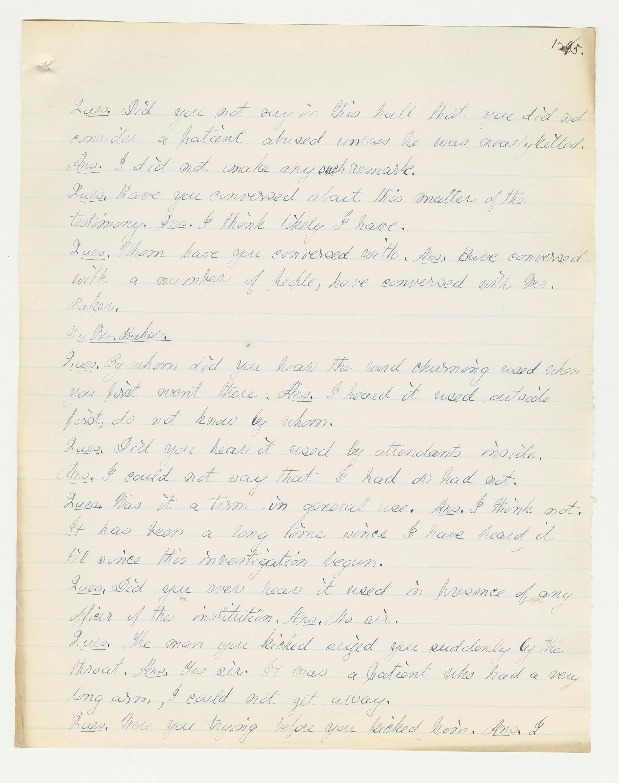 Ques. Did you not say in this hall that you did not
consider a patient abused unless he was nearly killed.
Ans. I did not make any such remark.
Ques. Have you conversed about this matter of the
testimony. Ans. I think likely I have.
Ques. Whom have you conversed with. Ans. Have conversed
with a number of people, have conversed with Mr.
Baker.
By Mr.
Ques. By whom did you hear the word churning used when
you first went there. Ans. I heard it used outside
first, do not know by whom.
Ques. Did you hear it used by attendants inside.
Ans. I could not say that I had or had not.
Ques. Was it a term in general use. Ans. I think not.
It has been a long time since I have heard it
till since this investigation begun.
Ques. Did you ever hear it used in presence of any
officer of the institution. Ans. No sir.
Ques. The man you kicked seized you suddenly by the
throat. Ans. Yes sir. It was a patient who had a very
long arm, I could not get away.
Ques. Were you trying before you kicked him. Ans. I